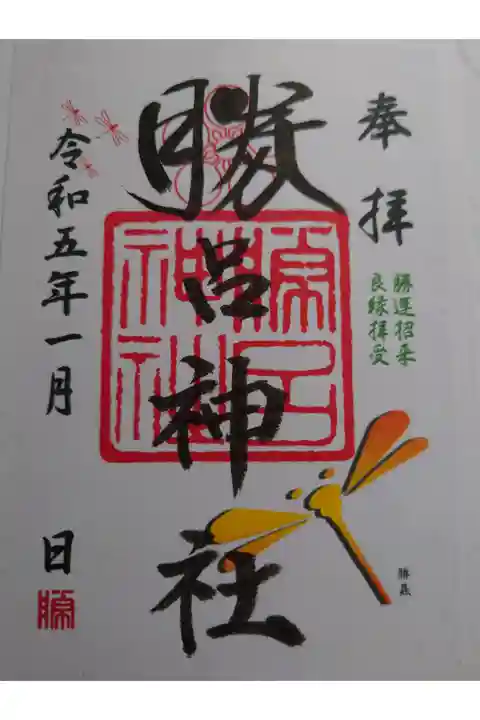 奉拝
勝運招来
良縁拝受
勝呂神社
勝呂神社
令和五年一月 日
勝
勝虫